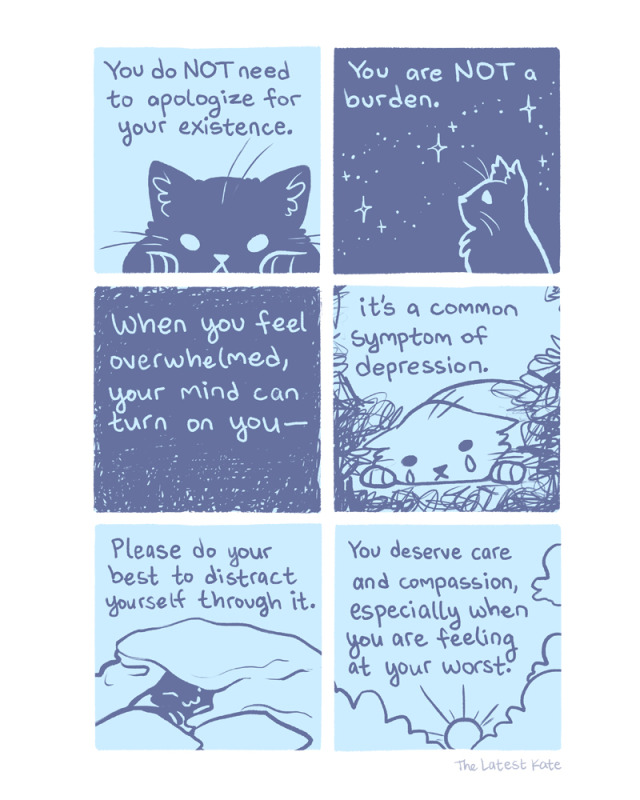 You do NOT need
to apologize for
your existence.
You are NOT a
burden.
When you feel
overwhelmed,
your mind can
turn on you—
it's a common
symptom of
depression.
Please do your
best to distract
yourself through it.
You deserve care
and compassion,
especially when
you are feeling
at your worst.
The Latest Kate